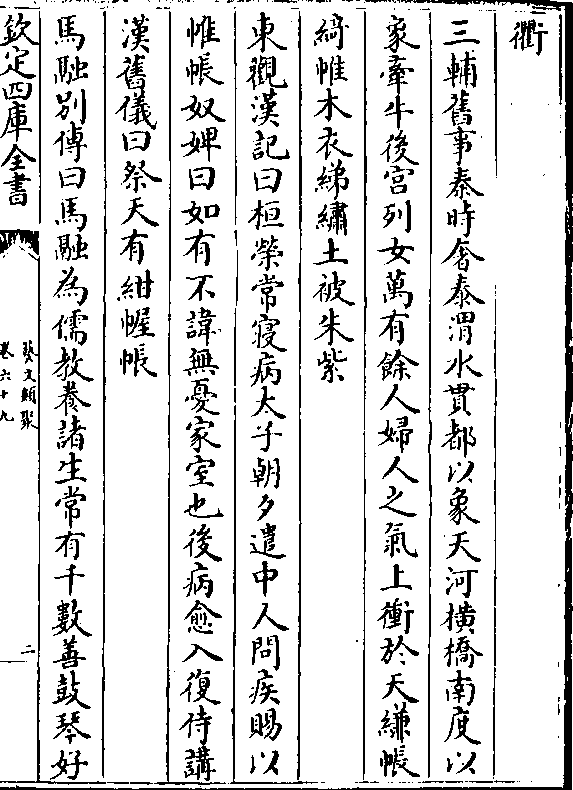 衢
三輔舊事秦時奢泰渭水貫都以象天河橫橋南度以
象牽牛後宮列女萬有餘人婦人之氣上衝於天縑帳
綺帷木衣綈繡土被朱紫
東觀漢記曰桓榮常寢病太子朝夕遣中人問疾賜以
帷帳奴婢曰如有不諱無憂家室也後病愈入復侍講
漢舊儀曰祭天有紺幄帳
馬融別傳曰馬融為儒教養諸生常有千數善鼓琴好
欽定四庫全書
藝文類聚
卷六十九
二